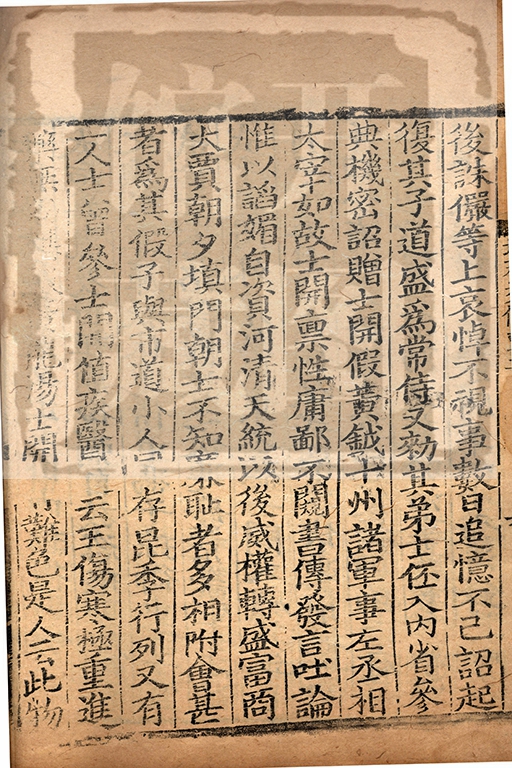 後誅儼等上哀悼不視事數日追憶不已詔起
復其子道盛爲常侍又勑其弟士伾入內省參
典機密詔贈士開假黃鉞十州諸軍事左丞相
太宰如故士開禀性庸鄙不闚書傳發言吐論
惟以謟媚自資河清天統以後威權轉盛富商
大賈朝夕填門朝士不知廉耻者多相附會甚
者爲其假子與市道小人同 存昆季行列又有
一人士曾參士開值疾醫 云王傷寒極重進
藥無 龍湯士開 難色是人云此物